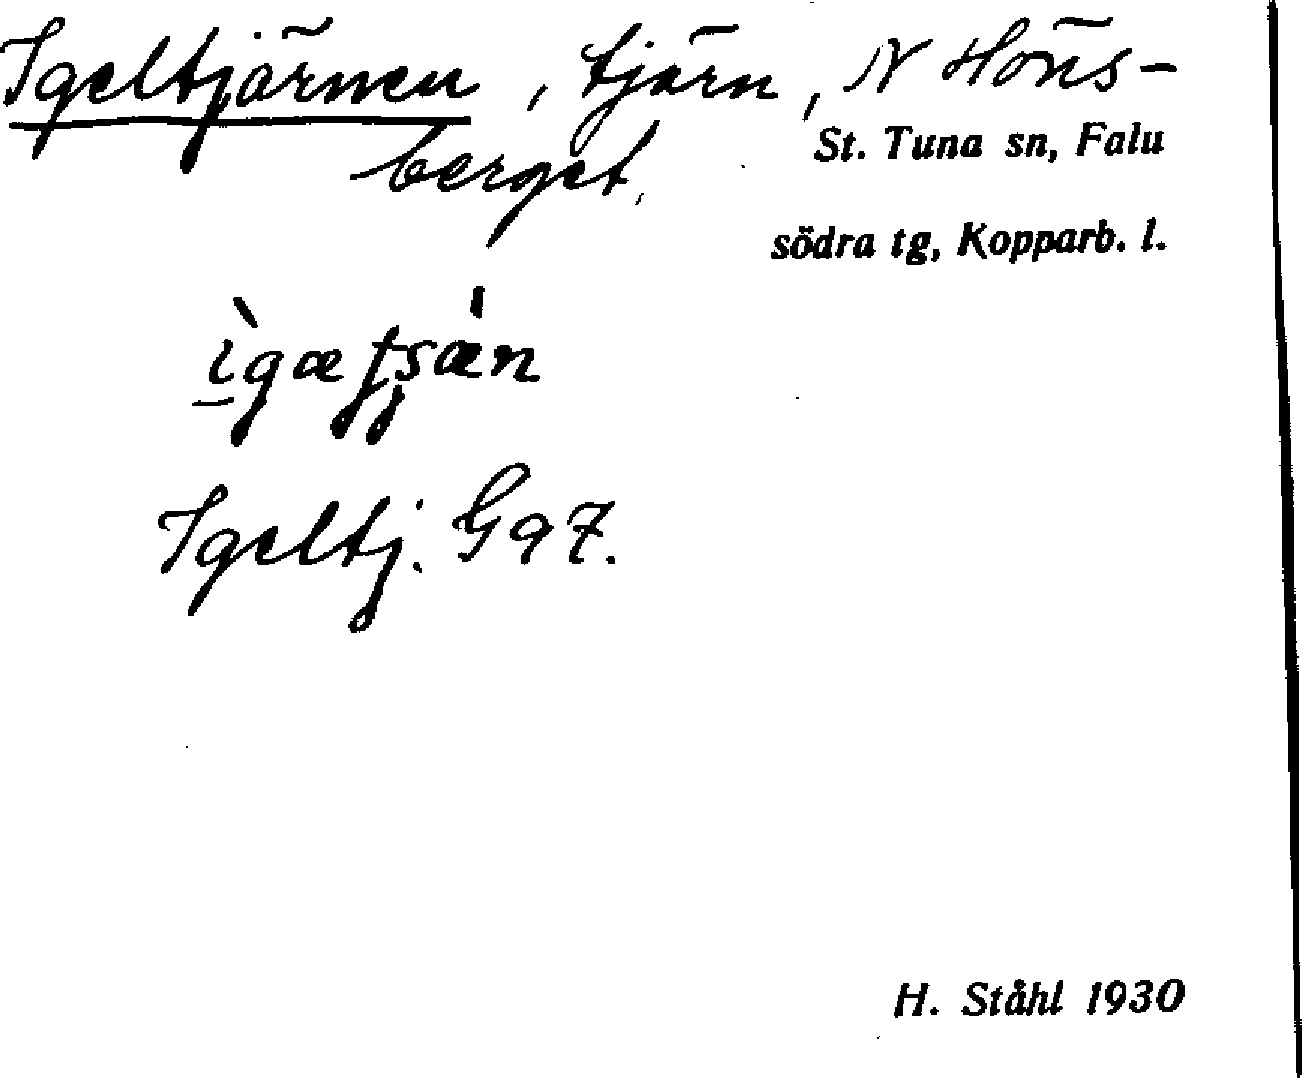 Igeltjärnen, tjärn, N Höns-
berget.
St. Tuna sn, Falu
södra tg, Kopparb. l.
Igeltj. G97.
H. Ståhl 1930